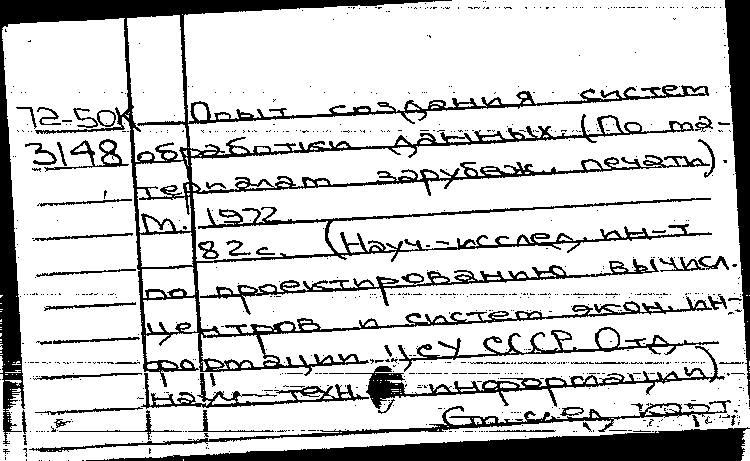 72-50К Опыт создания систем
3148 обработки данных. (По ма-
териалам зарубеж. печати).
М. 1972.
82 с. (Науч.-исслед. ин-т
по проектированию вычисл.
центров и систем экон. ин-
формации ЦСУ СССР. Отд.
науч.-техн. информации)
См. след. карт.